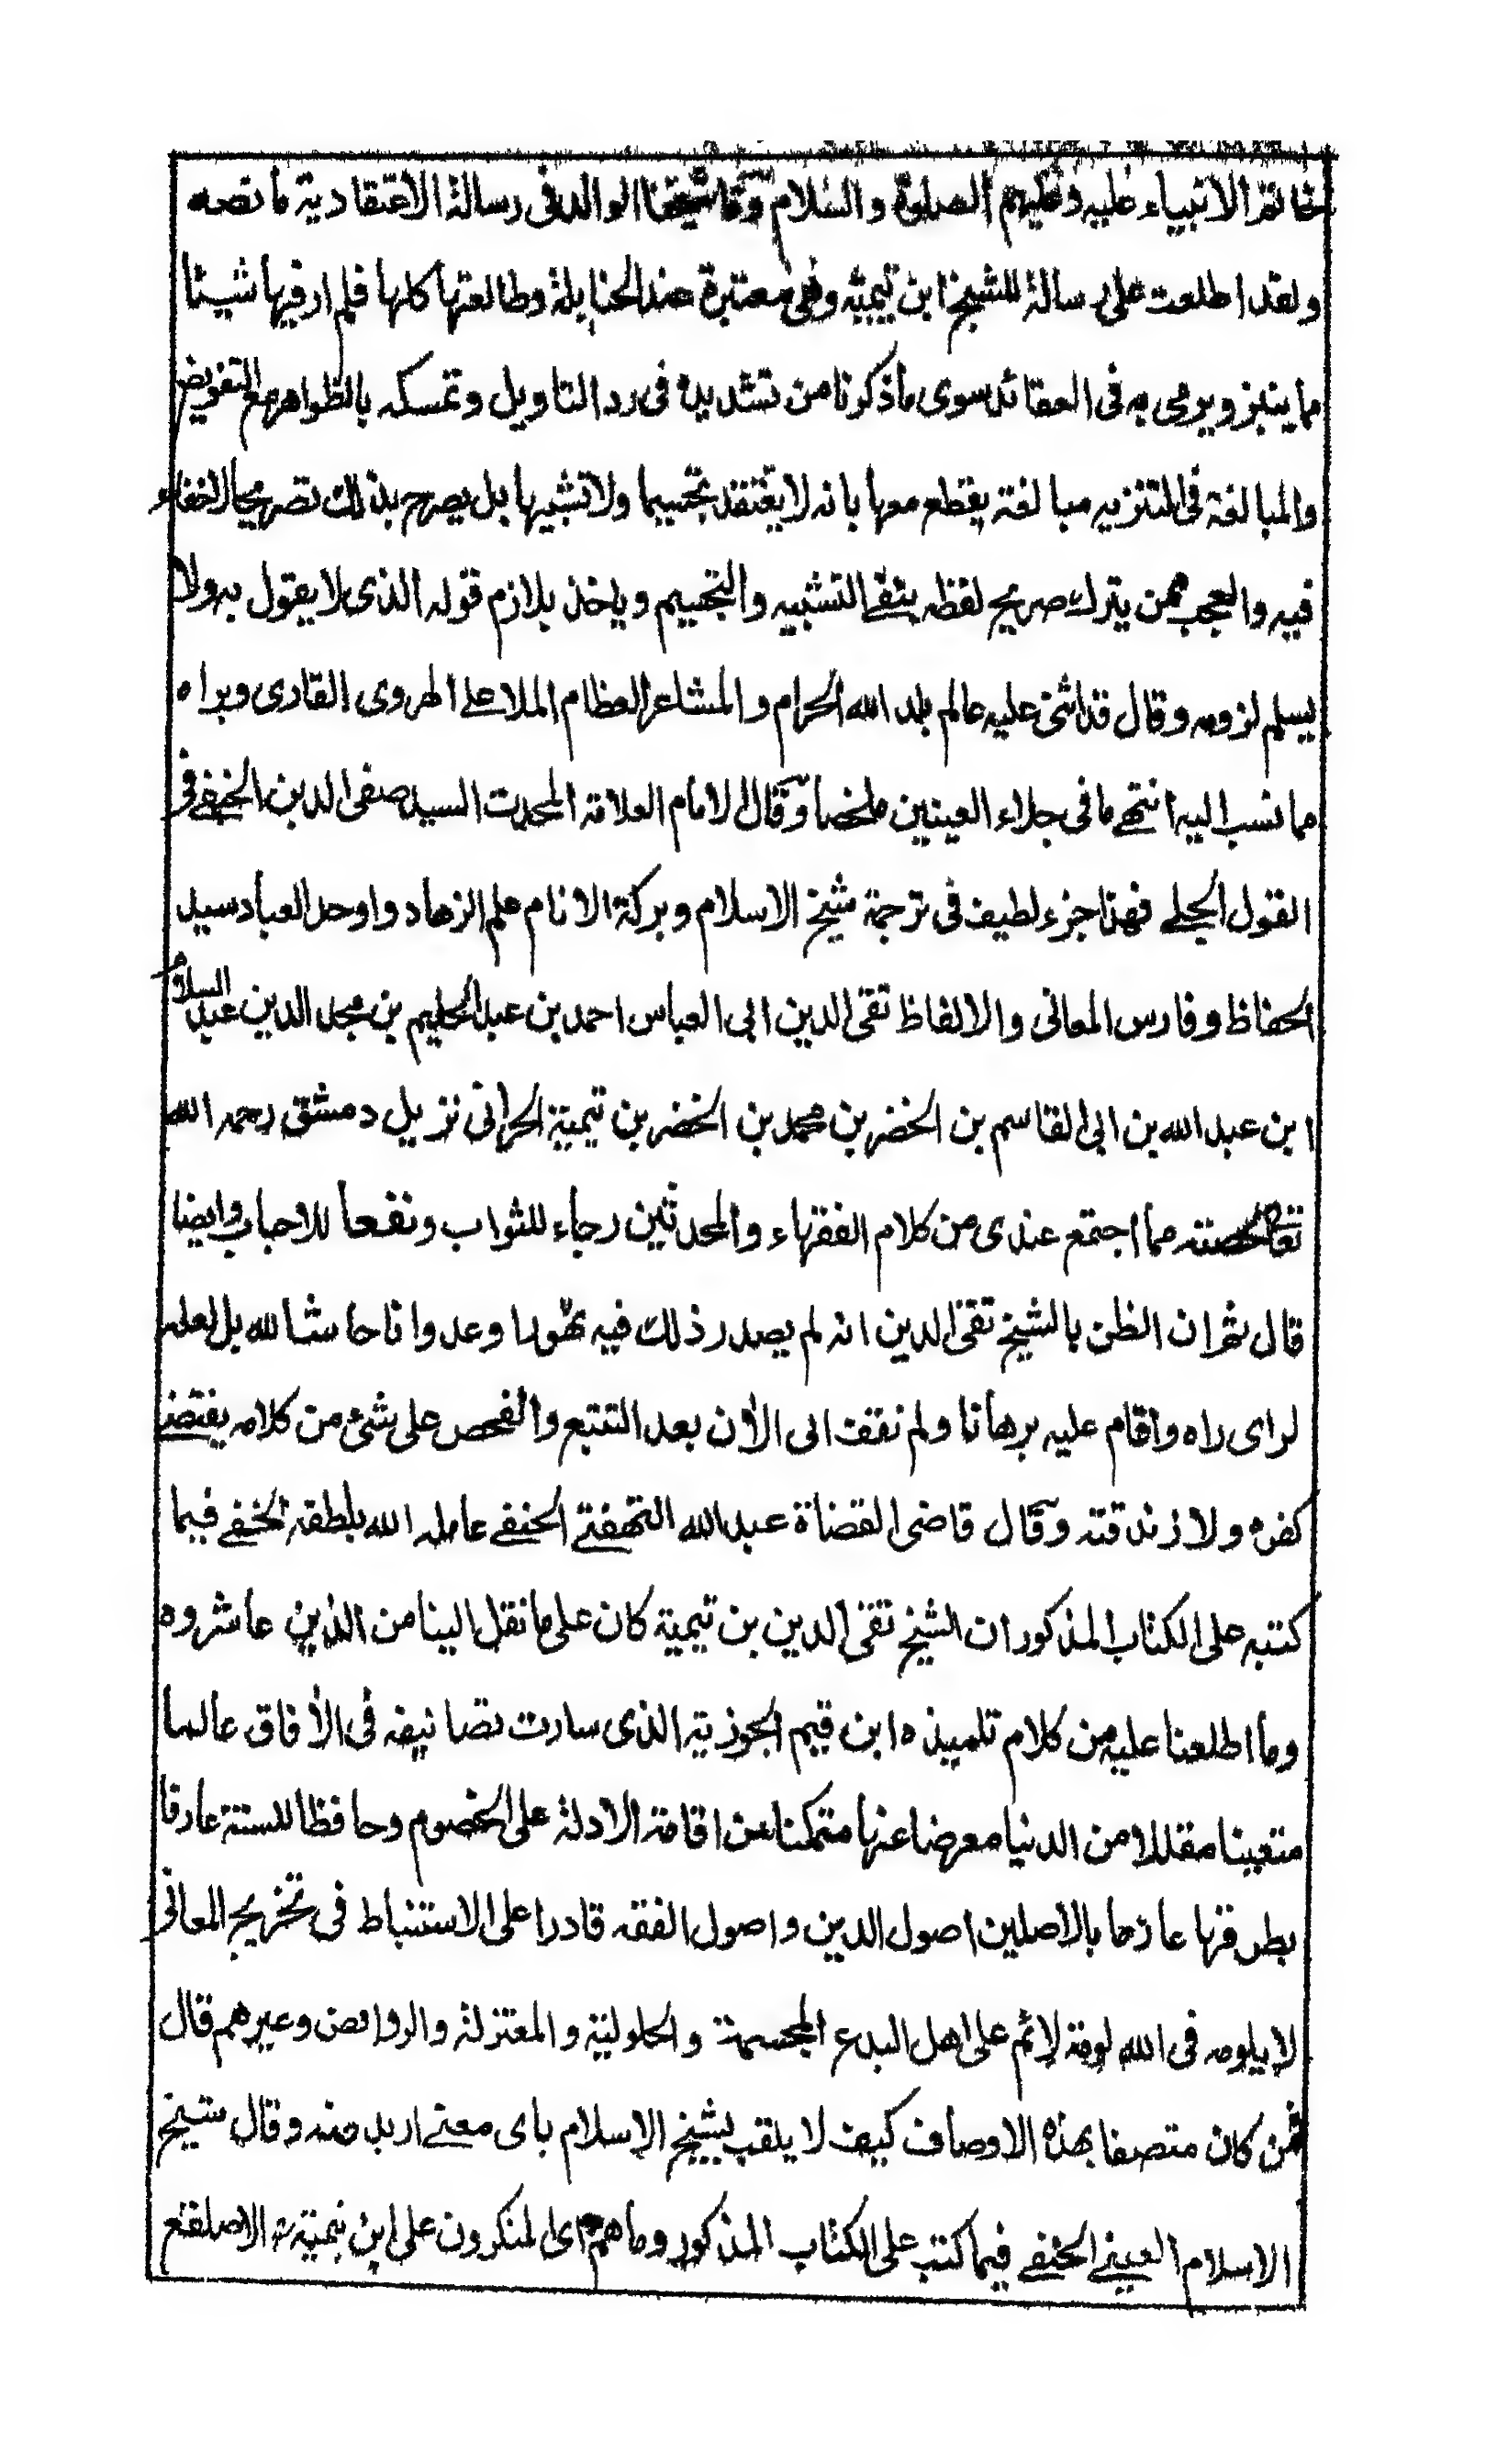 خاتم الانبياء عليه وعليهم الصلوة والسلام وقال شيخنا الوالد فى رسالة الاعتقادية ما نصه
ولقد اطلعت على رسالة للشيخ ابن تيمية وهى معتبرة عند الحنابلة وطالعتها كلها فلم ار فيها شيئا
مما ينبز ويرمى به فى العقائد سوى ما ذكرنا من تشديده فى رد التاويل وتمسكه بالظواهر مع التفويض
والمبالغة فى التنزيه مبالغة يقطع معها بانه لا يعتقد تجسيما ولا تشبيها بل يصرح بذلك تصريحا لا خفاء
فيه والعجب ممن يترك صريح لفظه بنفے التشبيه والتجسيم وياخذ بلازم قوله الذى لا يقول به ولا
يسلم لزومه وقال قد اثنى عليه عالم بلد الله الحرام والمشاعر العظام الملا علے الهروى القارى وبراه
مما نسب اليه انتهے ما فى جلاء العينين ملخصا وقال الامام العلامة المحدث السيد صفى الدين الحنفے فى
القول الجلے فهذا جزء لطيف فى ترجمة شيخ الاسلام وبركة الانام علم الزهاد واوحد العباد سيد
الحفاظ وفارس المعانى والالفاظ تقى الدين ابى العباس احمد بن عبد الحليم بن مجد الدين عبد السلام
ابن عبد الله بن ابى القاسم بن الخضر بن محمد بن الخضر بن تيمية الحرانى نزيل دمشق رحمه الله
تعالى لخصته مما اجتمع عندى من كلام الفقهاء والمحدثين رجاء للثواب ونفعا للاحباب وايضا
قال ثم ان الظن بالشيخ تقى الدين انه لم يصدر ذلك فيه تهورا وعدوانا حاشا لله بل لعله
لراى راه واقام عليه برهانا ولم نقف الى الأن بعد التتبع والفحص على شئ من كلامه يقتضے
كفره ولا زندقته وقال قاضى القضاة عبد الله التهفنے الحنفے عامله الله بلطفه الخفے فيما
كتبه على الكتاب المذكور ان الشيخ تقى الدين بن تيمية كان على ما نقل الينا من الذين عاشروه
وما اطلعنا عليه من كلام تلميذه ابن قيم الجوزية الذى سارت تصانيفه فى الأفاق عالما
متعينا مقللا من الدنيا معرضا عنها متمكنا من اقامة الادلة على الخصوم وحافظا للسنة عارفا
بطرقها عازما بالاصلين اصول الدين واصول الفقه قادرا على الاستنباط فى تخريج المعانى
لا يلومه فى الله لومة لائم على اهل البدع المجسمة والحلولية والمعتزلة والروافض وغيرهم قال
فمن كان متصفا بهذه الاوصاف كيف لا يلقب بشيخ الاسلام باى معنے اريد منه وقال شيخ
الاسلام العينے الحنفے فيما كتب على الكتاب المذكور وما هم اى المنكرون على ابن تيمية الا صلقع